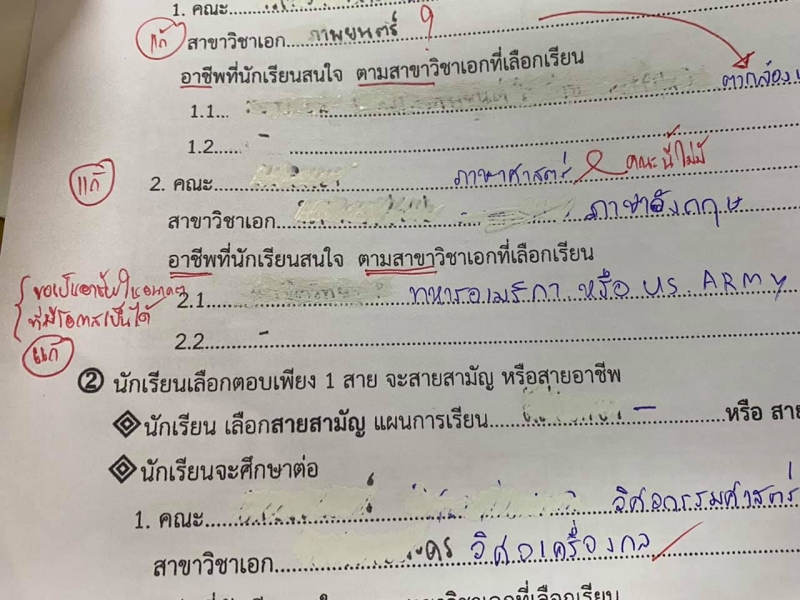 1. คณะ
แก้ สาขาวิชาเอก....ภาพยนตร์ ?
อาชีพที่นักเรียนสนใจ ตามสาขาวิชาเอกที่เลือกเรียน
1.1... ตากล้อง
1.2.. -
แก้ 2. คณะ ภาษาศาสตร์ คณะนี้ไม่มี
สาขาวิชาเอก ภาษาอังกฤษ
อาชีพที่นักเรียนสนใจ ตามสาขาวิชาเอกที่เลือกเรียน
ขอเป็นอาชีพในอนาคต
ที่มีโอกาสเป็นได้
2.1 ทหารอเมริกา หรือ US ARMY
แก้
2.2 -
② นักเรียนเลือกตอบเพียง 1 สาย จะสายสามัญ หรือสายอาชีพ
นักเรียน เลือกสายสามัญ แผนการเรียน.... - ....หรือ สาย
นักเรียนจะศึกษาต่อ
1. คณะ.... วิศวกรรมศาสตร์
สาขาวิชาเอก.... วิศวเครื่องกล